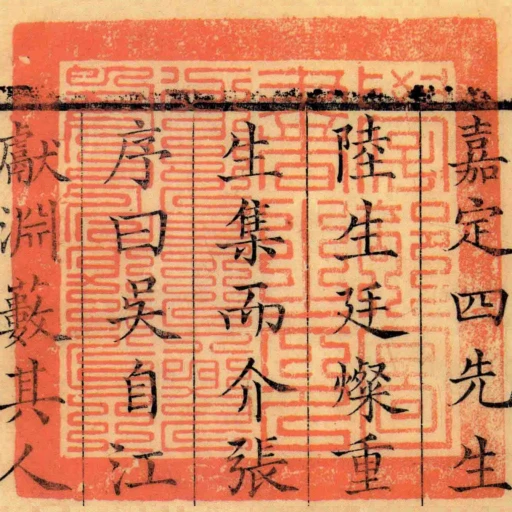 嘉定四先生
陸生廷燦重
生集而介張
序曰吴自江
獻淵藪其人